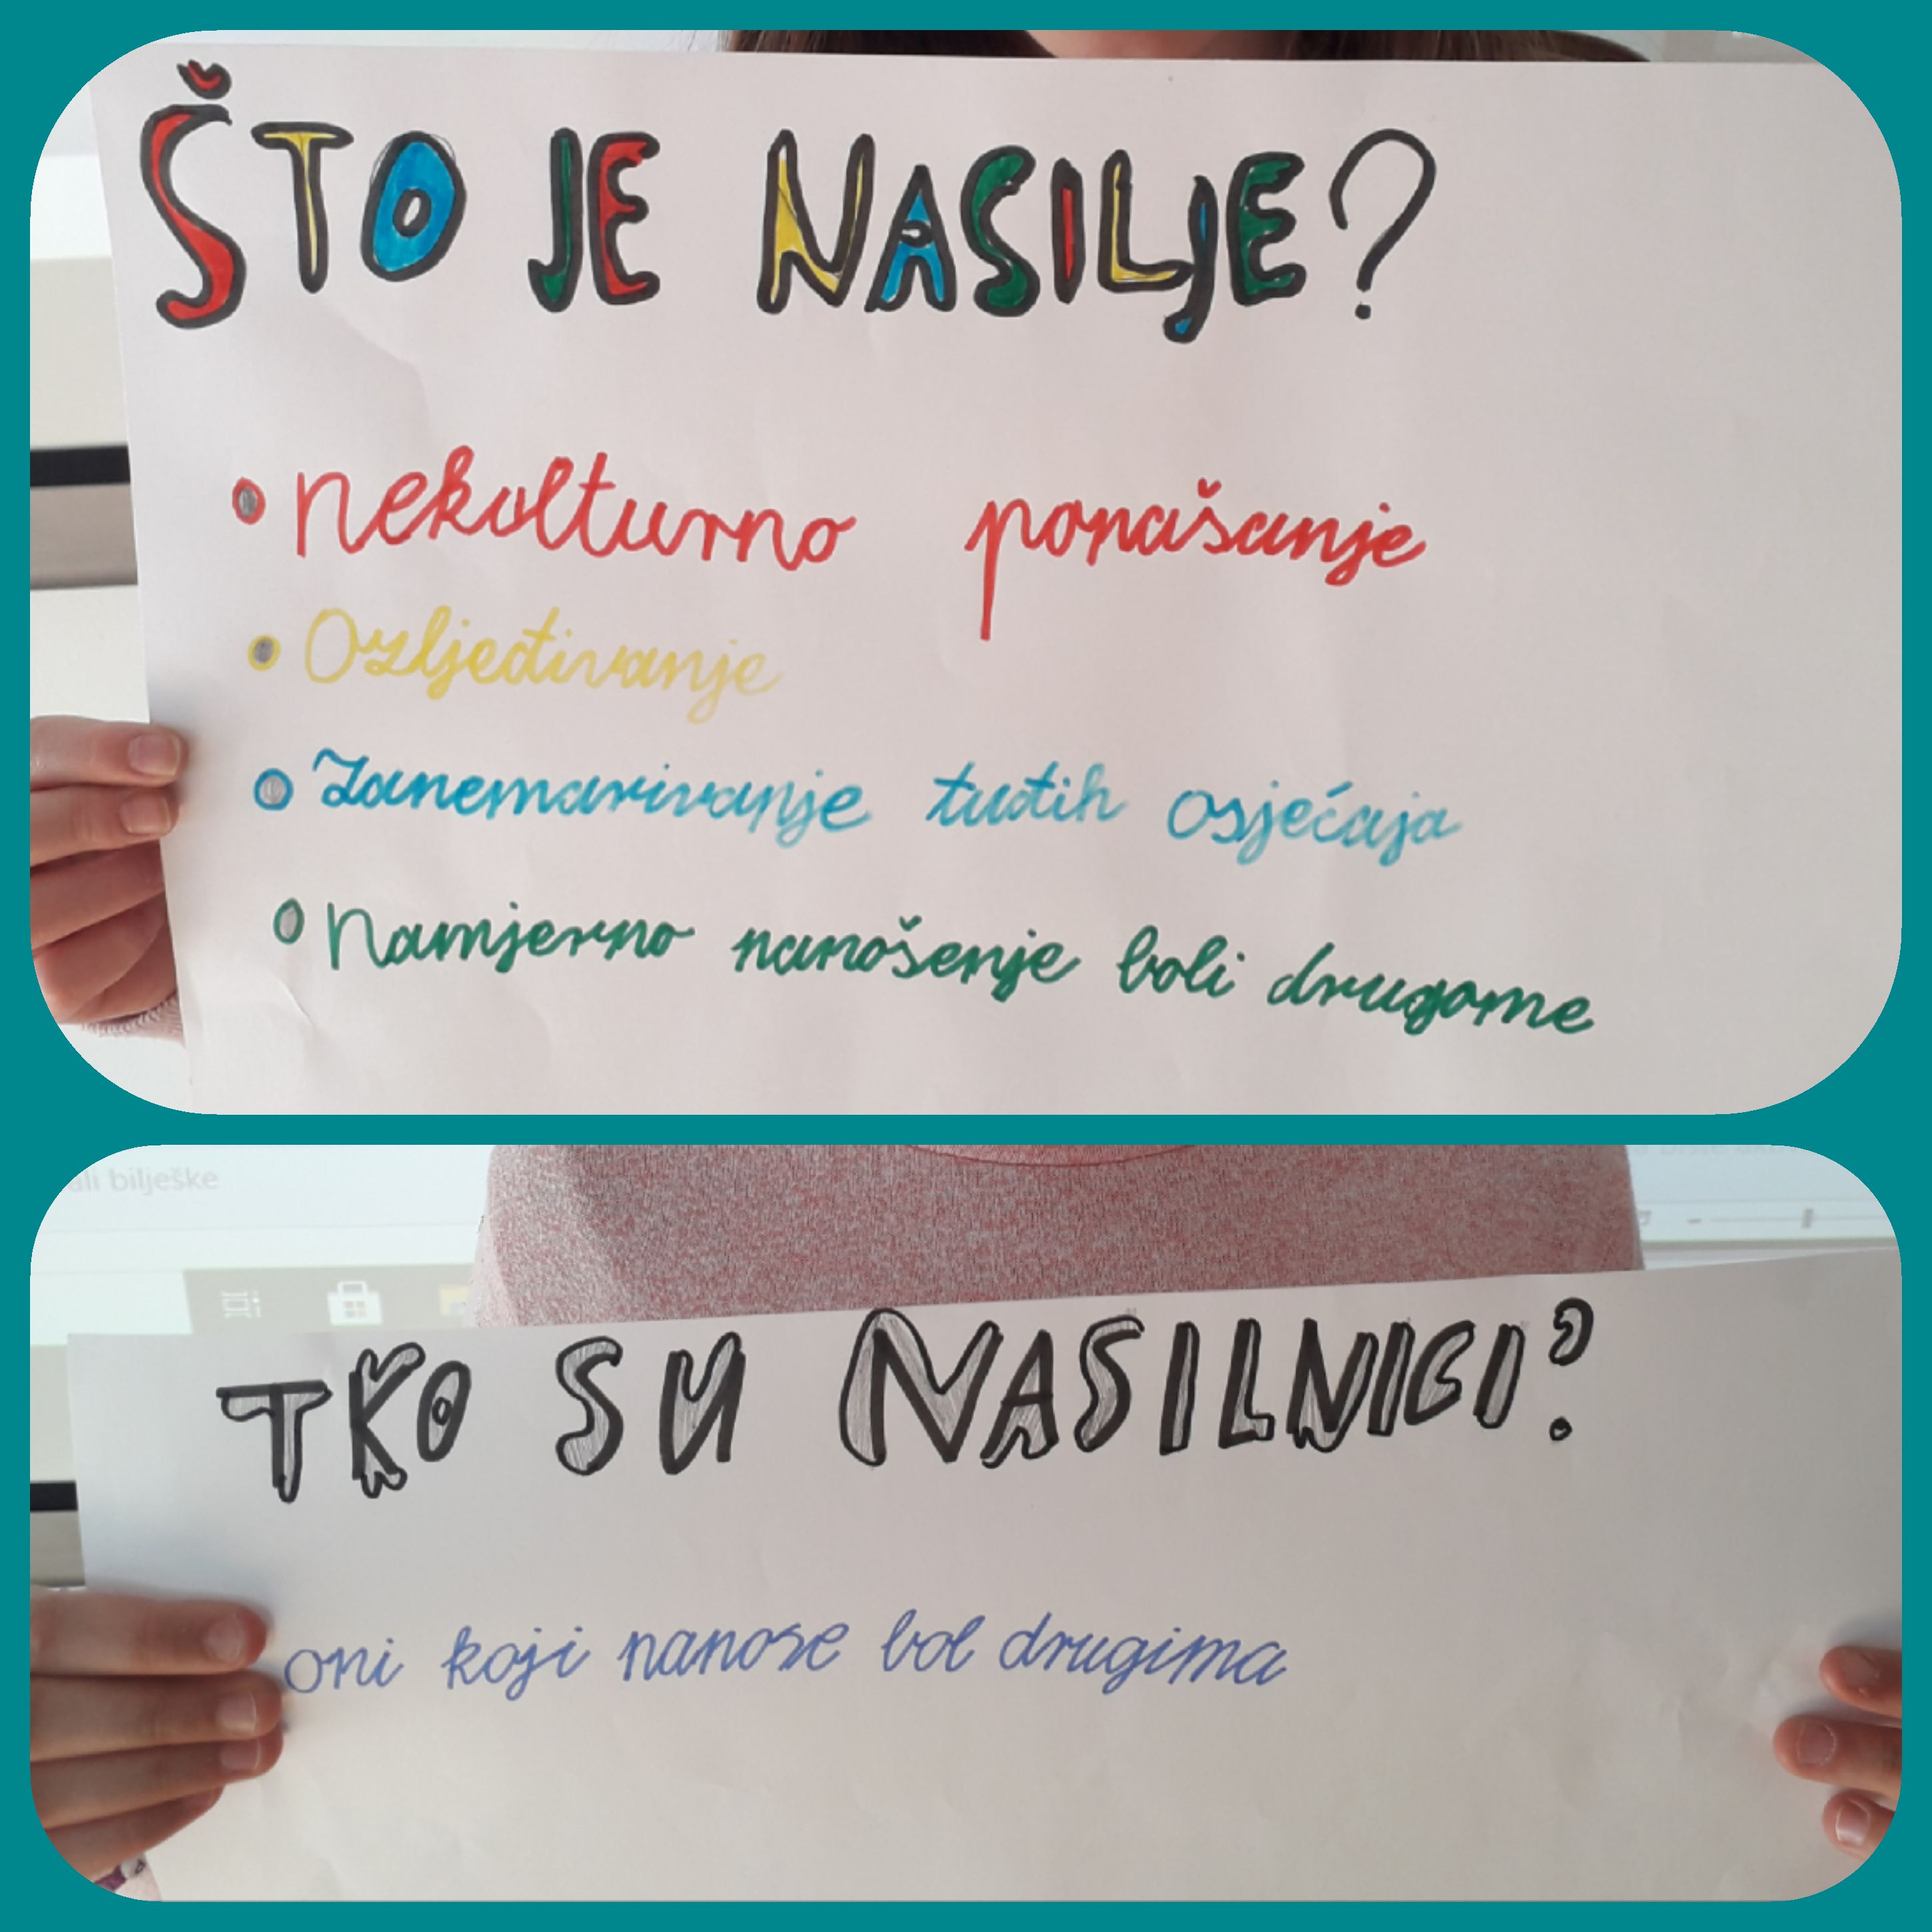 ŠTO JE NASILJE?
nekolturno ponašanje
Ozljeđivanje
Zanemarivanje tuđih osjećaja
Namjerno nanošenje boli drugome
bilješke
TKO SU NASILNICI?
oni koji nanose bol drugima